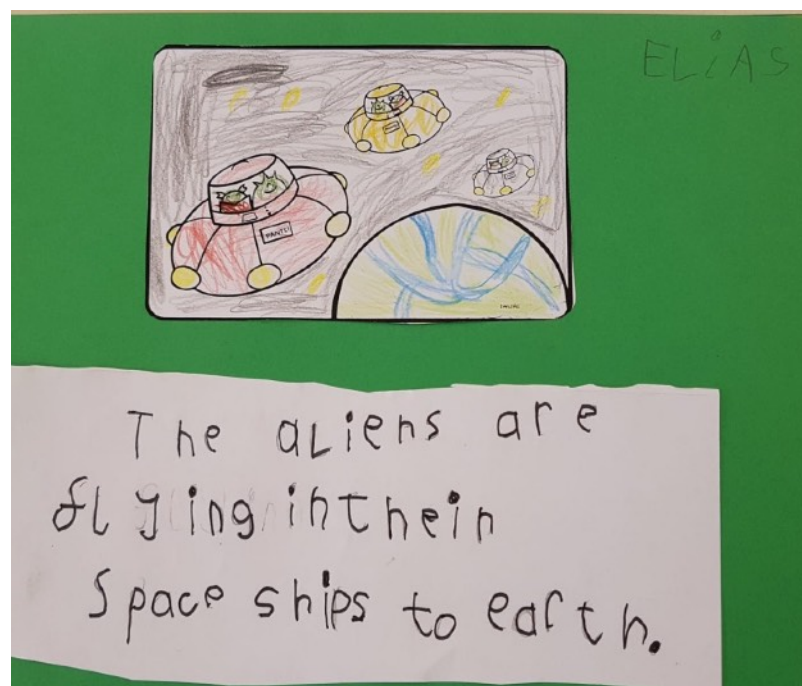 ELiAS
The aLiens are
flying inthein
Space ships to earth.